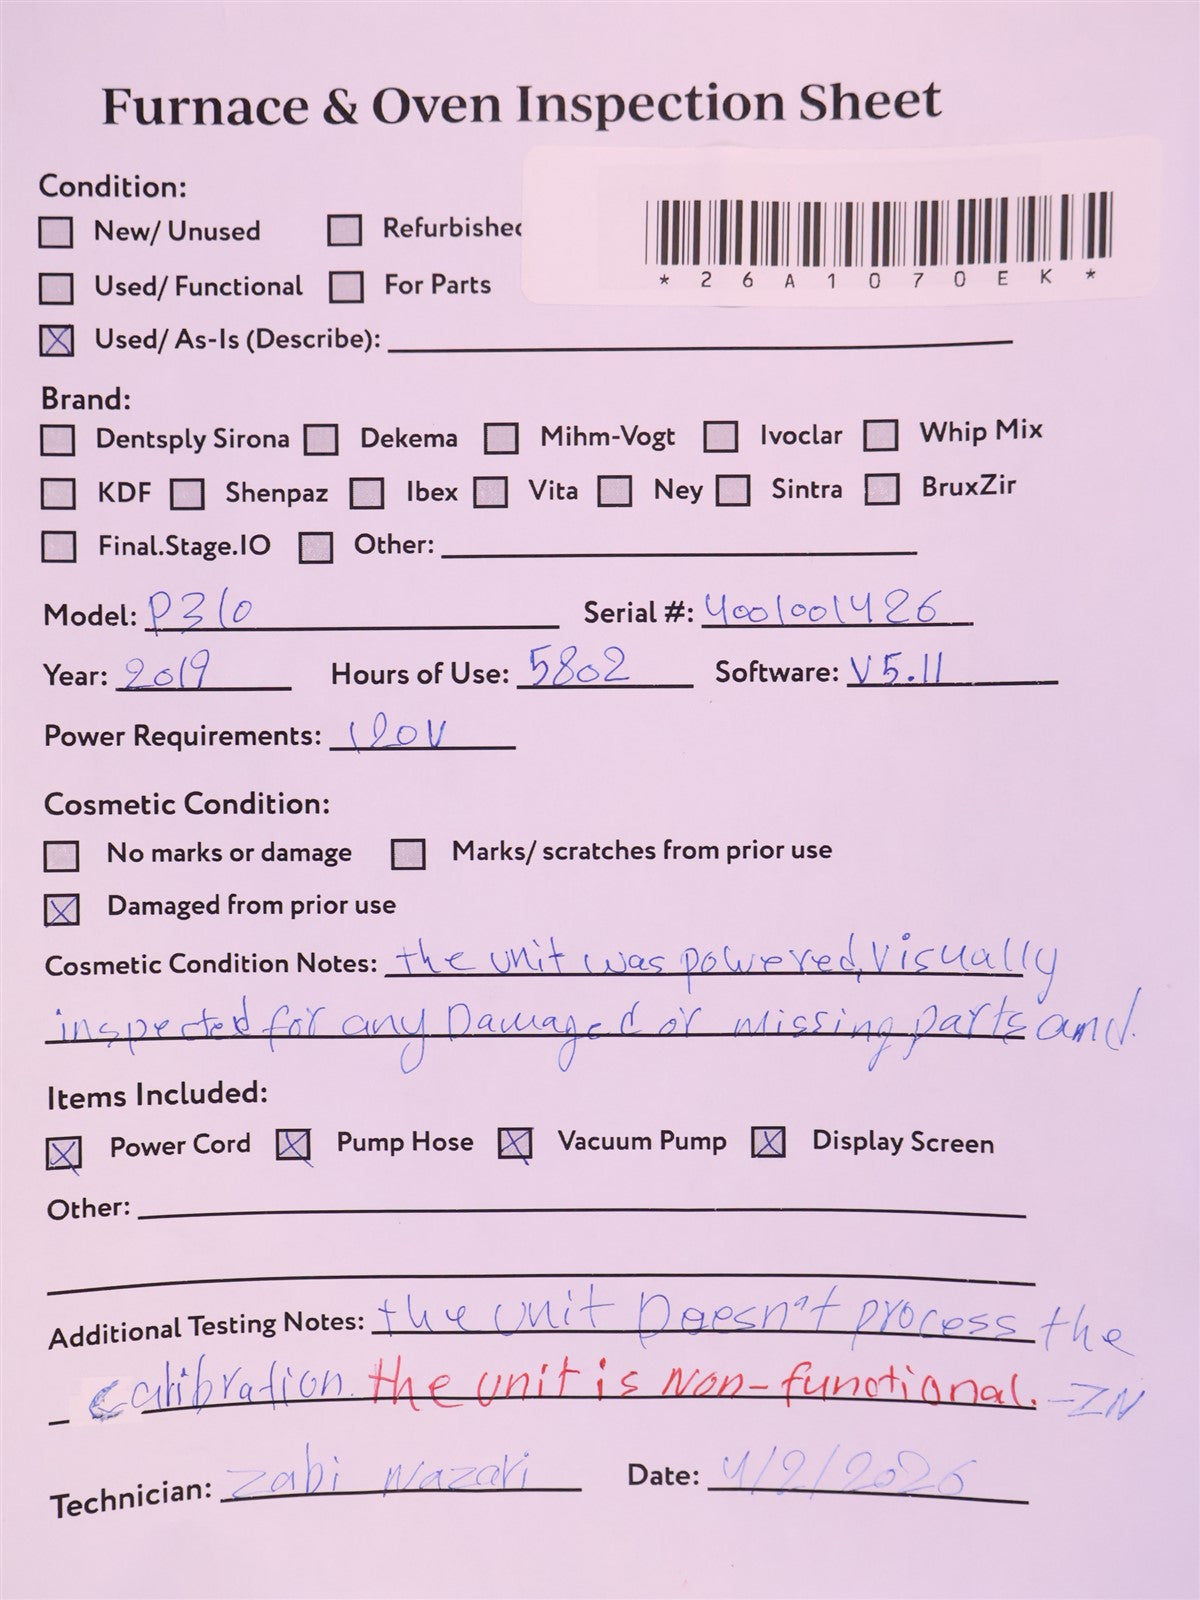 Furnace & Oven Inspection Sheet
Condition:
New/ Unused Refurbished
*26A1070EK*
Used/ Functional For Parts
Used/ As-Is (Describe):
Brand:
Dentsply Sirona Dekema Mihm-Vogt Ivoclar Whip Mix
KDF Shenpaz Ibex Vita Ney Sintra BruxZir
Final.Stage.IO Other:
Model: P310 Serial #: 4001001426
Year: 2019 Hours of Use: 5802 Software: V5.11
Power Requirements: 120V
Cosmetic Condition:
No marks or damage Marks/ scratches from prior use
Damaged from prior use
Cosmetic Condition Notes: the unit was powered, Visually
inspected for any Damaged or missing parts and.
Items Included:
Power Cord Pump Hose Vacuum Pump Display Screen
Other:
Additional Testing Notes: the unit Doesn't process the
calibration. the unit is Non-functional. -ZN
Technician: Zabi Nazari Date: 4/2/2026